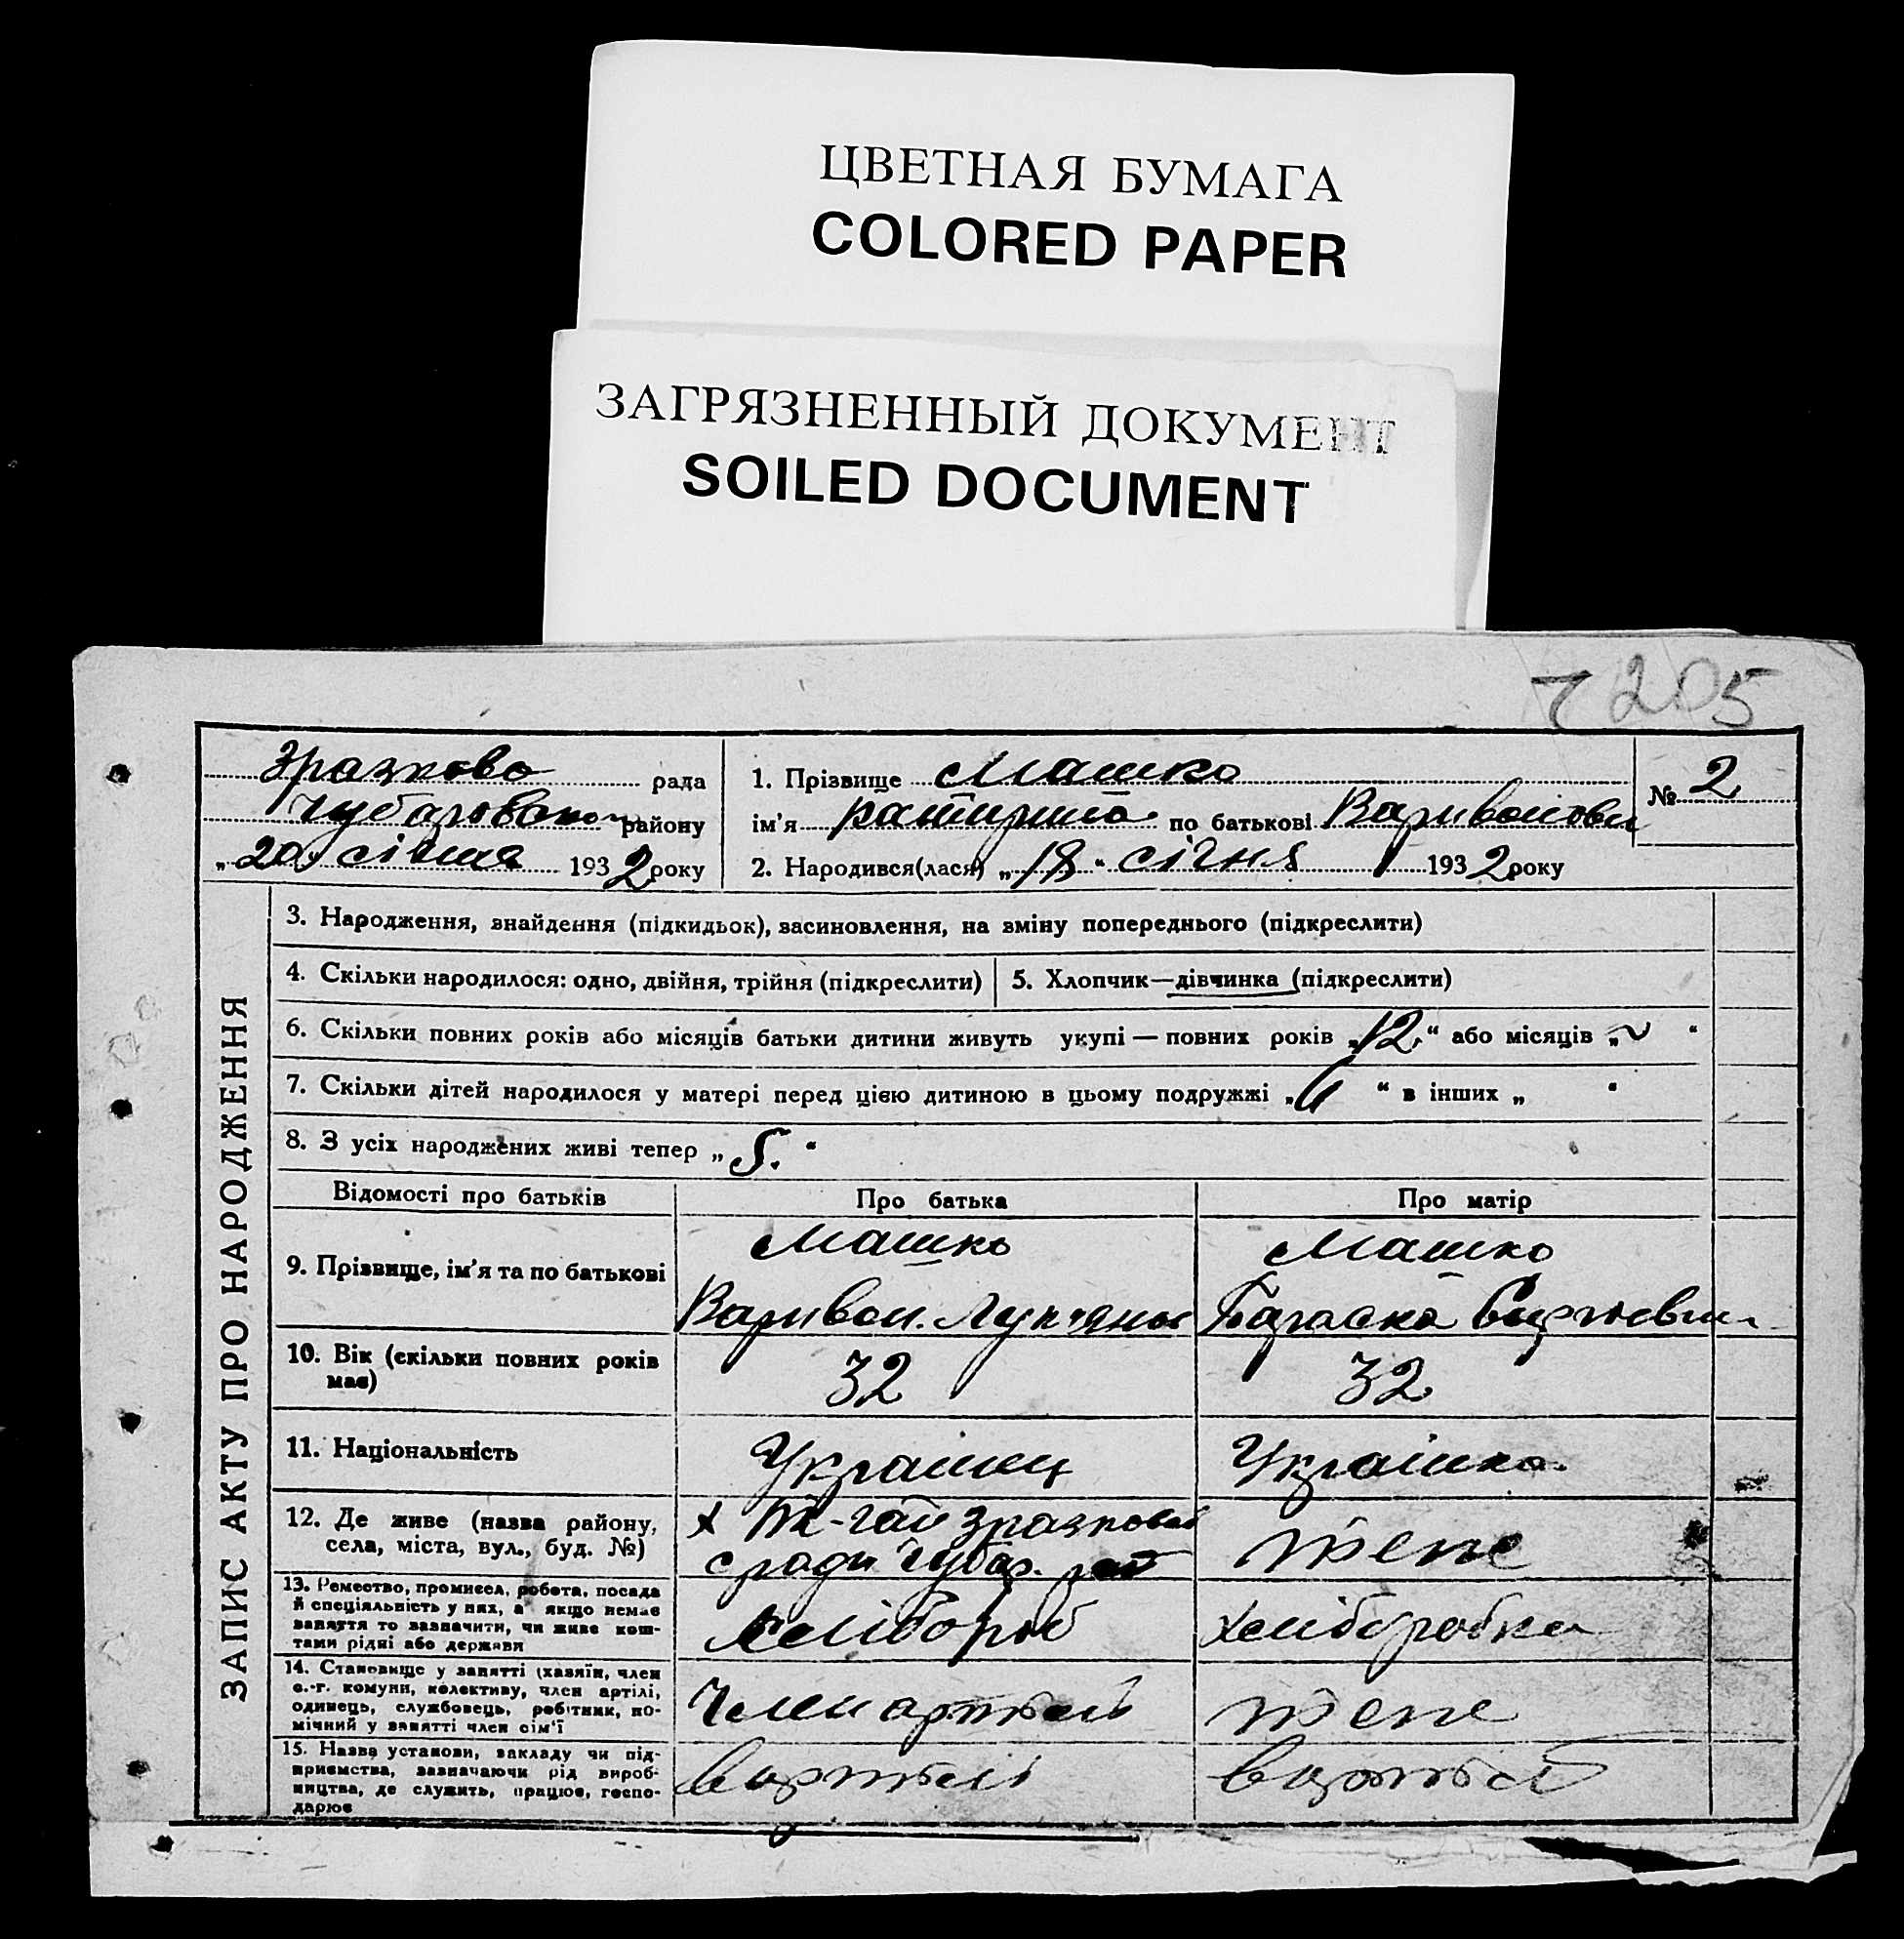 ЦВЕТНАЯ БУМАГА
COLORED PAPER
ЗАГРЯЗНЕННЫЙ ДОКУМЕНТ
SOILED DOCUMENT
205
Зразково рада
Чубарівського району
„20" січня 1932 року
1. Прізвище Машко
ім'я Катирина по батькові Варивонівна
№ 2
2. Народився(лася) „18" січня 1932 року
ЗАПИС АКТУ ПРО НАРОДЖЕННЯ
3. Народження, знайдення (підкидьок), засиновлення, на зміну попереднього (підкреслити)
4. Скільки народилося: одно, двійня, трійня (підкреслити) 5. Хлопчик—дівчинка (підкреслити)
6. Скільки повних років або місяців батьки дитини живуть укупі — повних років „12" або місяців „~"
7. Скільки дітей народилося у матері перед цією дитиною в цьому подружжі „ " в інших „ "
8. З усіх народжених живі тепер „5."
Відомості про батьків Про батька Про матір
9. Прізвище, ім'я та по батькові
Машко Машко
Варивон Параска
10. Вік (скільки повних років
має)
32 32
11. Національність Українец Українка
12. Де живе (назва району,
села, міста, вул., буд. №)
х -гай Зразкова
с ради Чубар. рай
теже
13. Ремество, промисел, робота, посада
й спеціяльність у них, а якщо немає
заняття то зазначити, чи живе кош-
тами рідні або держави
хлібороб хліборобка
14. Становище у занятті (хазяїн, член
с.-г. комуни, колективу, член артілі,
одинець, службовець, робітник, по-
мічний у занятті член сім'ї
Член артель теже
15. Назва установи, закладу чи під-
приємства, зазначаючи рід вироб-
ництва, де служить, працює, госпо-
дарює
вартіли вартіли